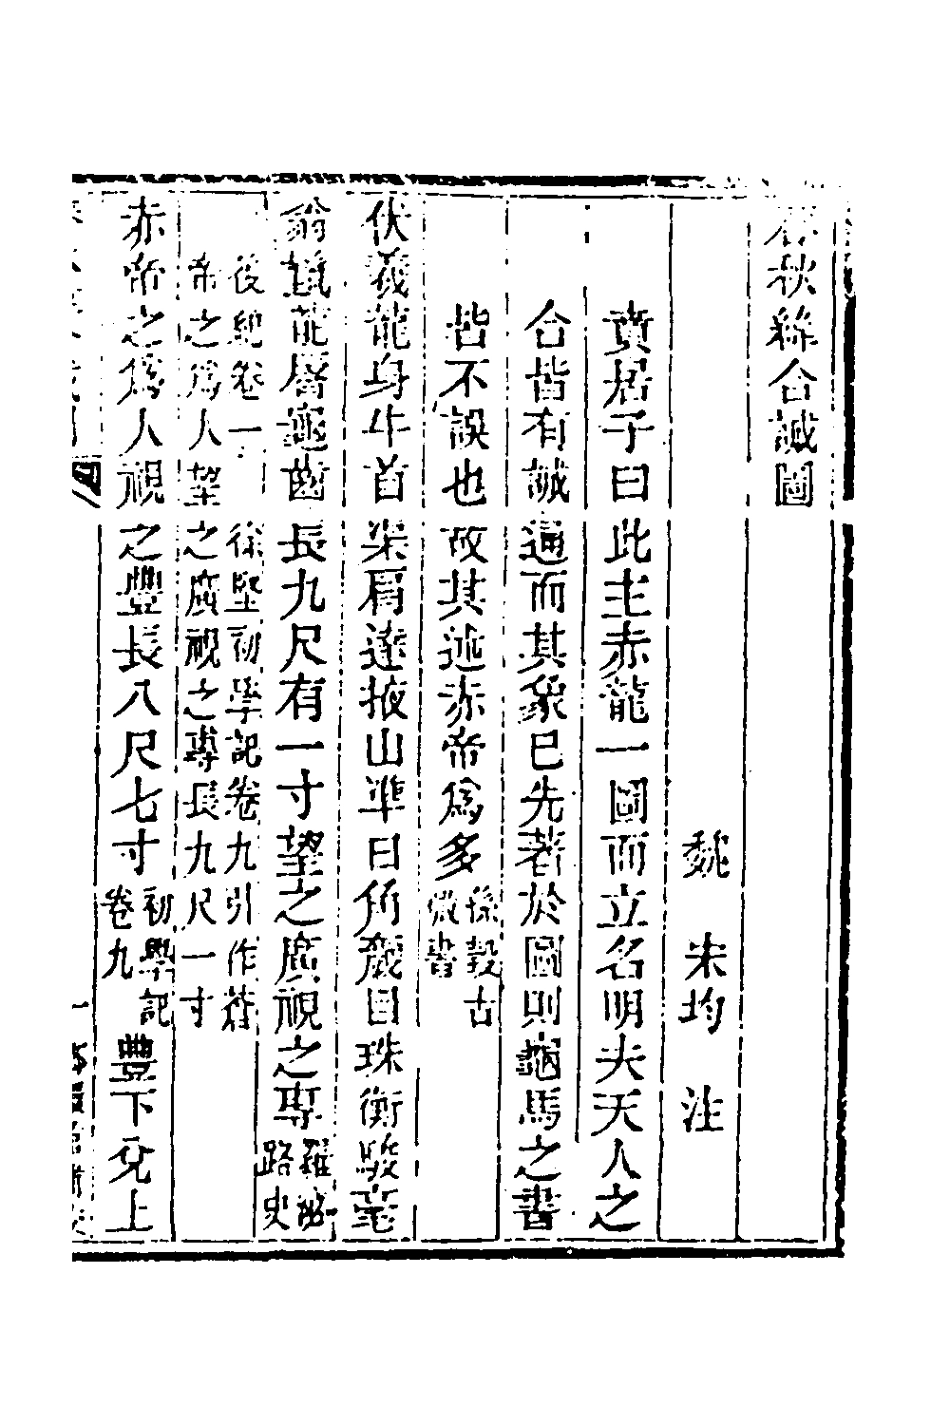 春秋緯合誠圖
魏 宋均 注
賁居子曰此主赤龍一圖而立名明夫天人之
合皆有誠通而其象已先著於圖則龜馬之書
皆不誤也故其述赤帝爲多孫瑴古微書
伏羲龍身牛首渠肩達掖山準日角奯目珠衡駿毫
翁鬣龍脣龜齒長九尺有一寸望之廣視之專羅泌路史
後紀卷一 徐堅初學記卷九引作蒼
帝之爲人望之廣視之專長九尺一寸
赤帝之爲人視之豐長八尺七寸初學記卷九豐下兌上